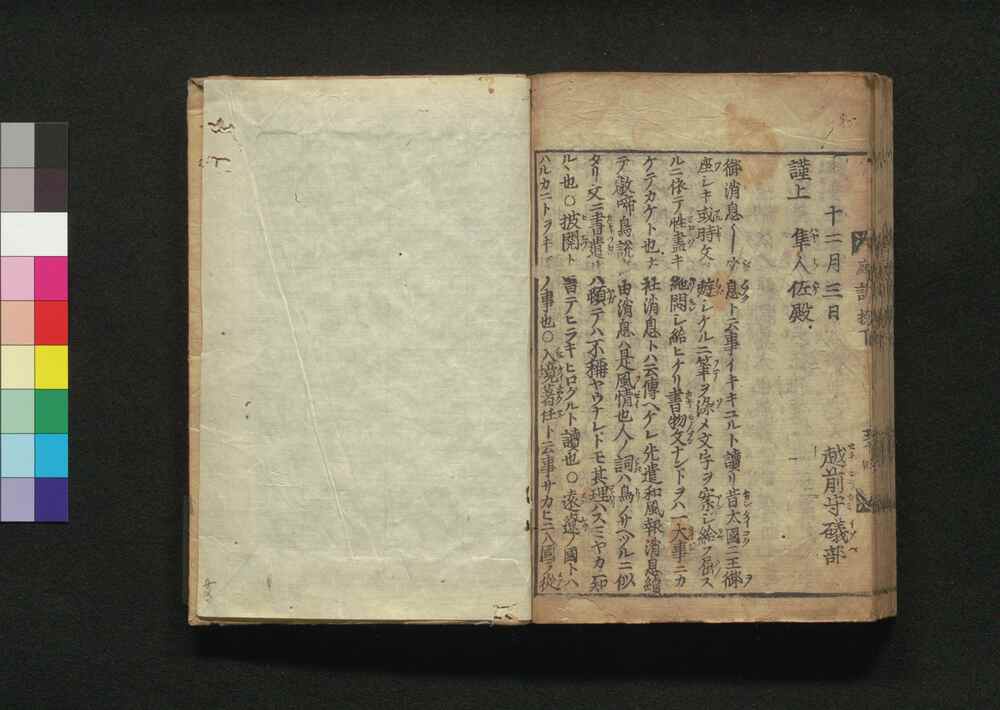 十二月三日
越前守礒部
謹上 隼人佐殿
御消息〳〵ウ息ト云事イキキユルト讀リ昔大國ニ王御
座シキ或時文ヲ遊シケルニ筆ヲ染メ文字ヲ案シ給フ
ルニ依テ性盡キ絶悶シ給ヒケリ書物文ナントヲハ一大事ニカ
ケテカケト也
社消息トハ云傳ヘケレ先遣和風報消息
テ啼鳥説由消息ハ是風情也人ノ詞ハ鳥ノサヘツルニ似
タリ文ニ書遣ハ頓テハ不稱ヤウナレトモ其理ハスミヤカニ知
ルヽ也○披閲トハ昔テヒラキヒログルト讀也○遠邊ノ國トハ
ハルカニトヲキノ事也○入境著任ト云事サカヒニ入國ヲ從